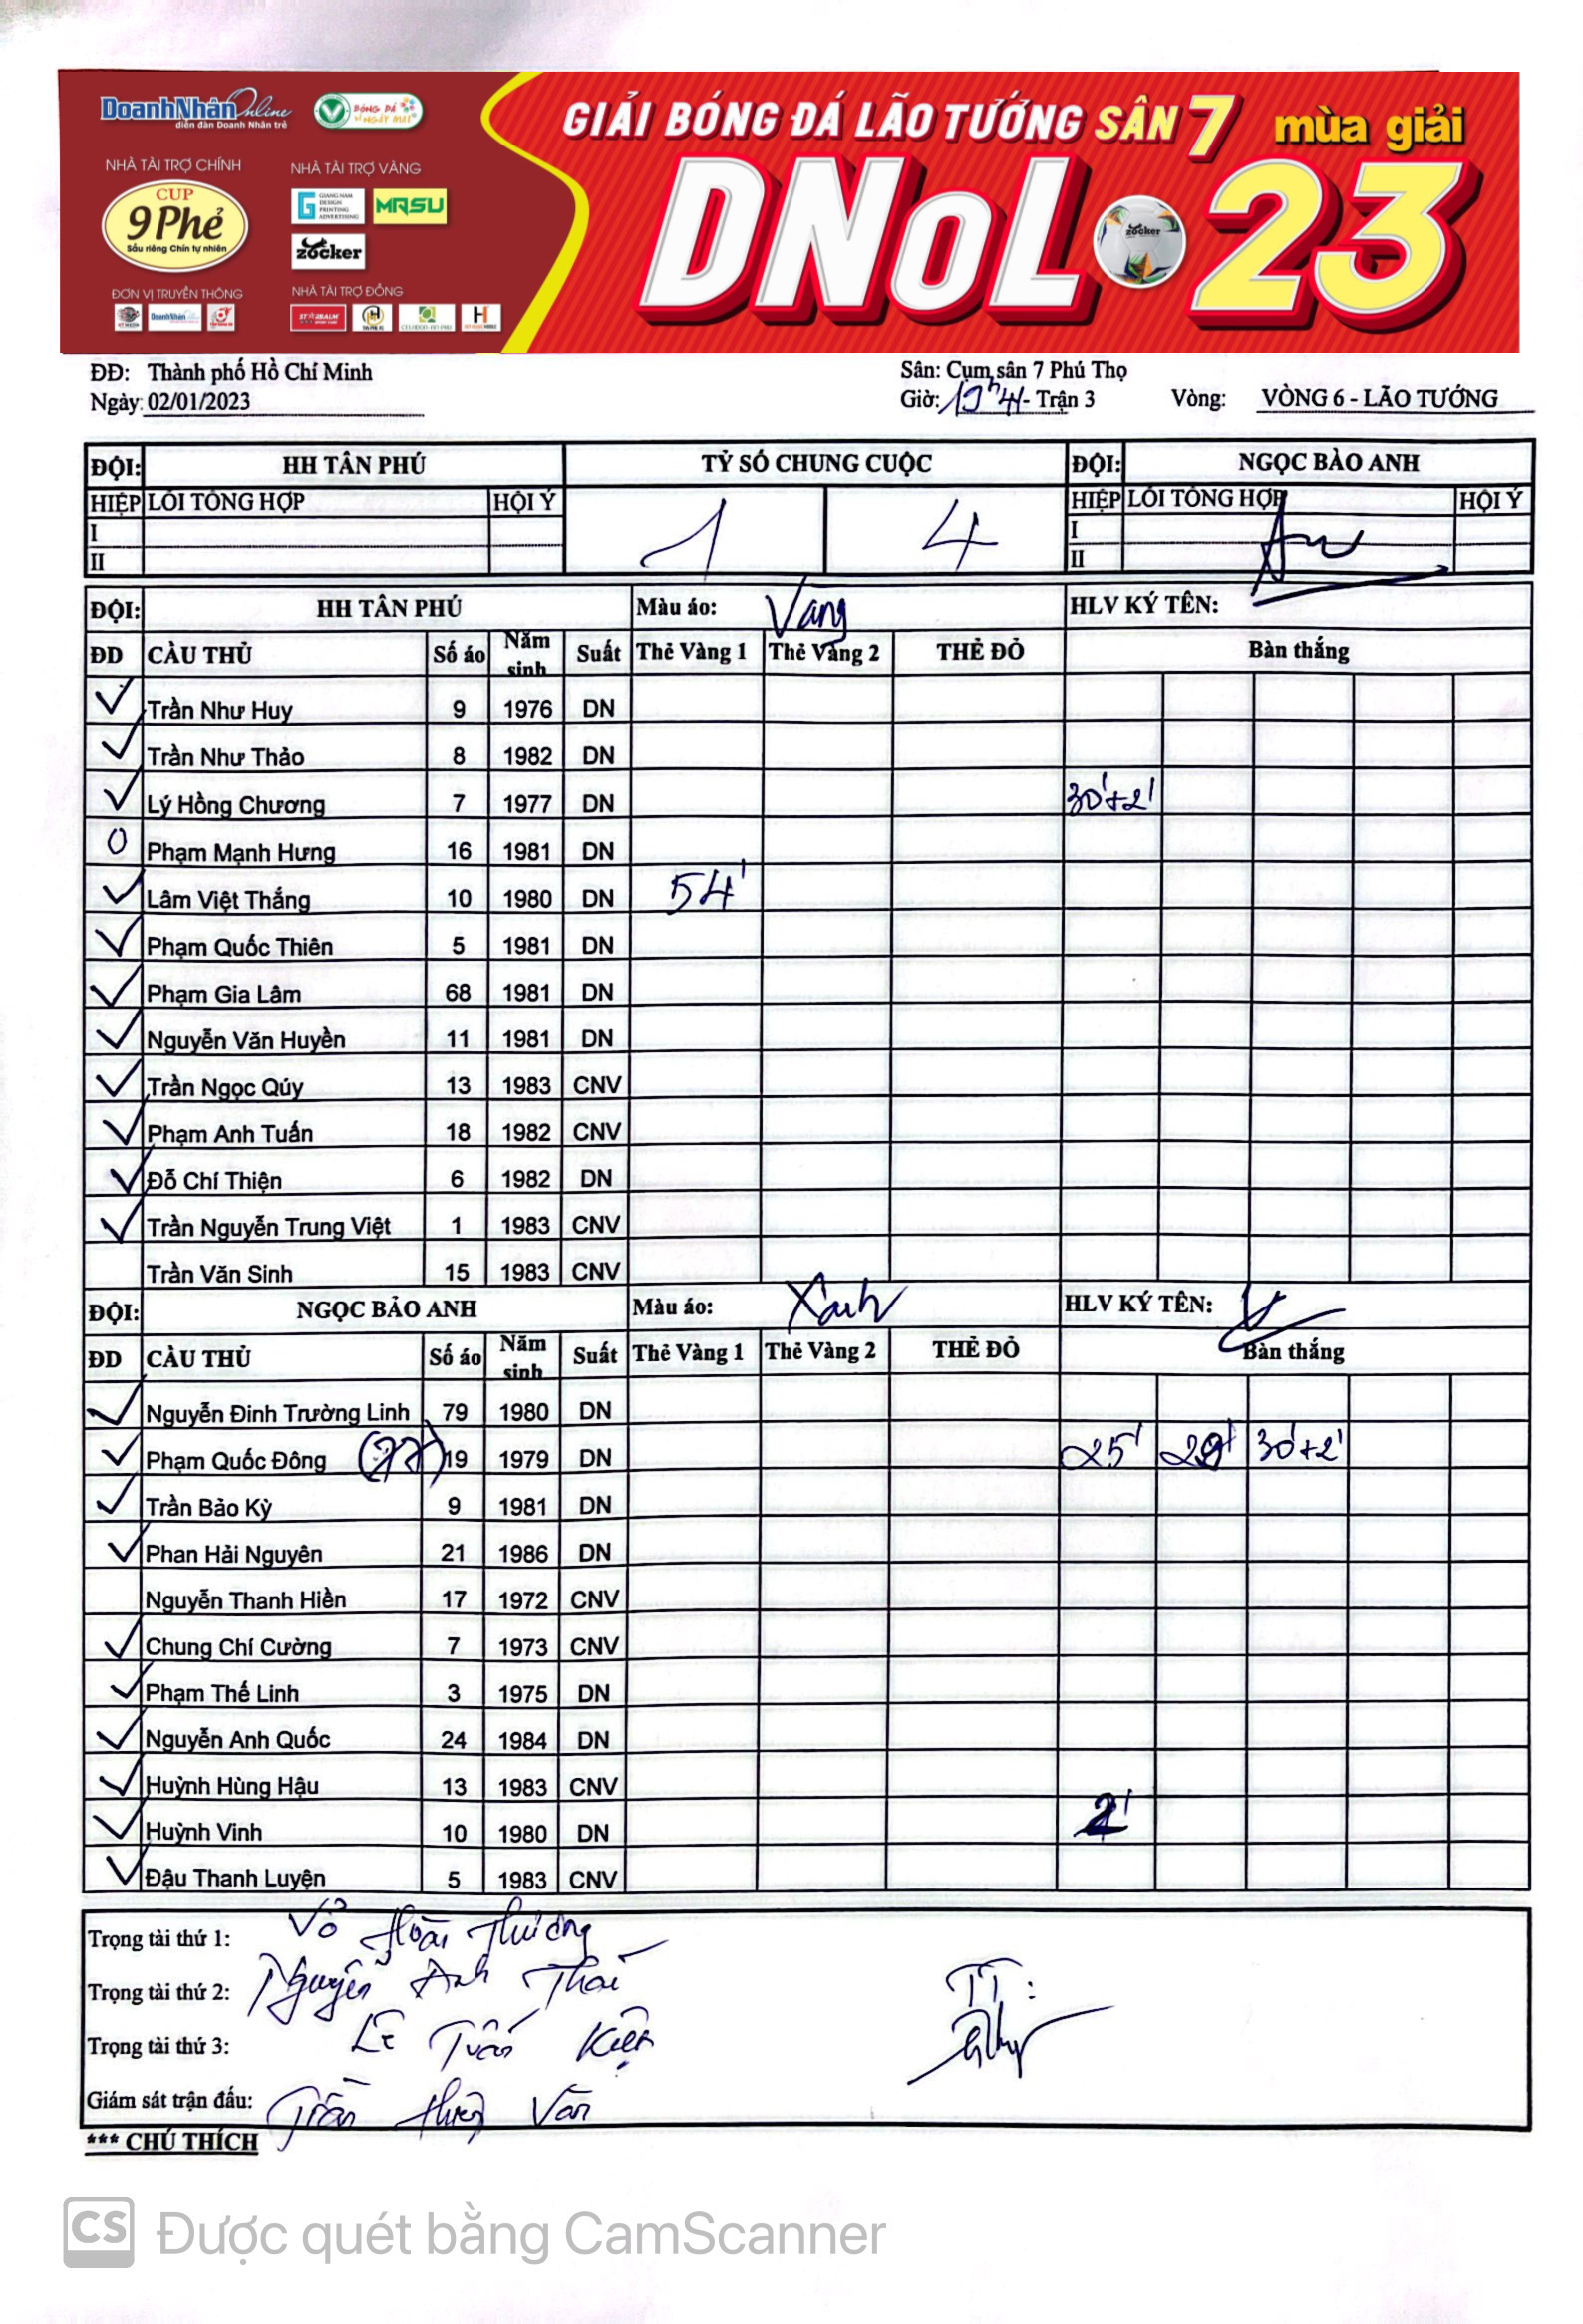 DoanhNhânOnline
diễn đàn Doanh Nhân trẻ
BÓNG ĐÁ
VÌ NGÀY MAI
GIẢI BÓNG ĐÁ LÃO TƯỚNG SÂN 7 mùa giải
DNoL 23
zocker
NHÀ TÀI TRỢ CHÍNH
NHÀ TÀI TRỢ VÀNG
CUP
9 Phẻ
Sầu riêng Chín tự nhiên
GIANG NAM
DESIGN
PRINTING
ADVERTISING
MRSU
zocker
ĐƠN VỊ TRUYỀN THÔNG
NHÀ TÀI TRỢ ĐỒNG
DoanhNhân
STARBALM
CELADON AN PHU
ĐĐ: Thành phố Hồ Chí Minh
Sân: Cụm sân 7 Phú Thọ
Ngày: 02/01/2023
Giờ: - Trận 3
Vòng: VÒNG 6 - LÃO TƯỚNG
ĐỘI: HH TÂN PHÚ TỶ SỐ CHUNG CUỘC ĐỘI: NGỌC BẢO ANH
HIỆP LỖI TỔNG HỢP HỘI Ý 1 4 HIỆP LỖI TỔNG HỢP HỘI Ý
I I
II II
ĐỘI: HH TÂN PHÚ Màu áo: Vàng HLV KÝ TÊN:
ĐD CẦU THỦ Số áo Năm sinh Suất Thẻ Vàng 1 Thẻ Vàng 2 THẺ ĐỎ Bàn thắng
Trần Như Huy 9 1976 DN
Trần Như Thảo 8 1982 DN
Lý Hồng Chương 7 1977 DN 30'+2'
0 Phạm Mạnh Hưng 16 1981 DN
Lâm Việt Thắng 10 1980 DN 54'
Phạm Quốc Thiên 5 1981 DN
Phạm Gia Lâm 68 1981 DN
Nguyễn Văn Huyền 11 1981 DN
Trần Ngọc Qúy 13 1983 CNV
Phạm Anh Tuấn 18 1982 CNV
Đỗ Chí Thiện 6 1982 DN
Trần Nguyễn Trung Việt 1 1983 CNV
Trần Văn Sinh 15 1983 CNV
ĐỘI: NGỌC BẢO ANH Màu áo: Xanh HLV KÝ TÊN:
ĐD CẦU THỦ Số áo Năm sinh Suất Thẻ Vàng 1 Thẻ Vàng 2 THẺ ĐỎ Bàn thắng
Nguyễn Đinh Trường Linh 79 1980 DN
Phạm Quốc Đông (77) 19 1979 DN 25' 29' 30'+2'
Trần Bảo Kỳ 9 1981 DN
Phan Hải Nguyên 21 1986 DN
Nguyễn Thanh Hiền 17 1972 CNV
Chung Chí Cường 7 1973 CNV
Phạm Thế Linh 3 1975 DN
Nguyễn Anh Quốc 24 1984 DN
Huỳnh Hùng Hậu 13 1983 CNV
Huỳnh Vinh 10 1980 DN 2'
Đậu Thanh Luyện 5 1983 CNV
Trọng tài thứ 1: Võ Hoài Thương
Trọng tài thứ 2: Nguyễn Anh Thái
TT:
Trọng tài thứ 3: Lê Tuấn Kiệt
Giám sát trận đấu: Trần Văn
*** CHÚ THÍCH
CS Được quét bằng CamScanner